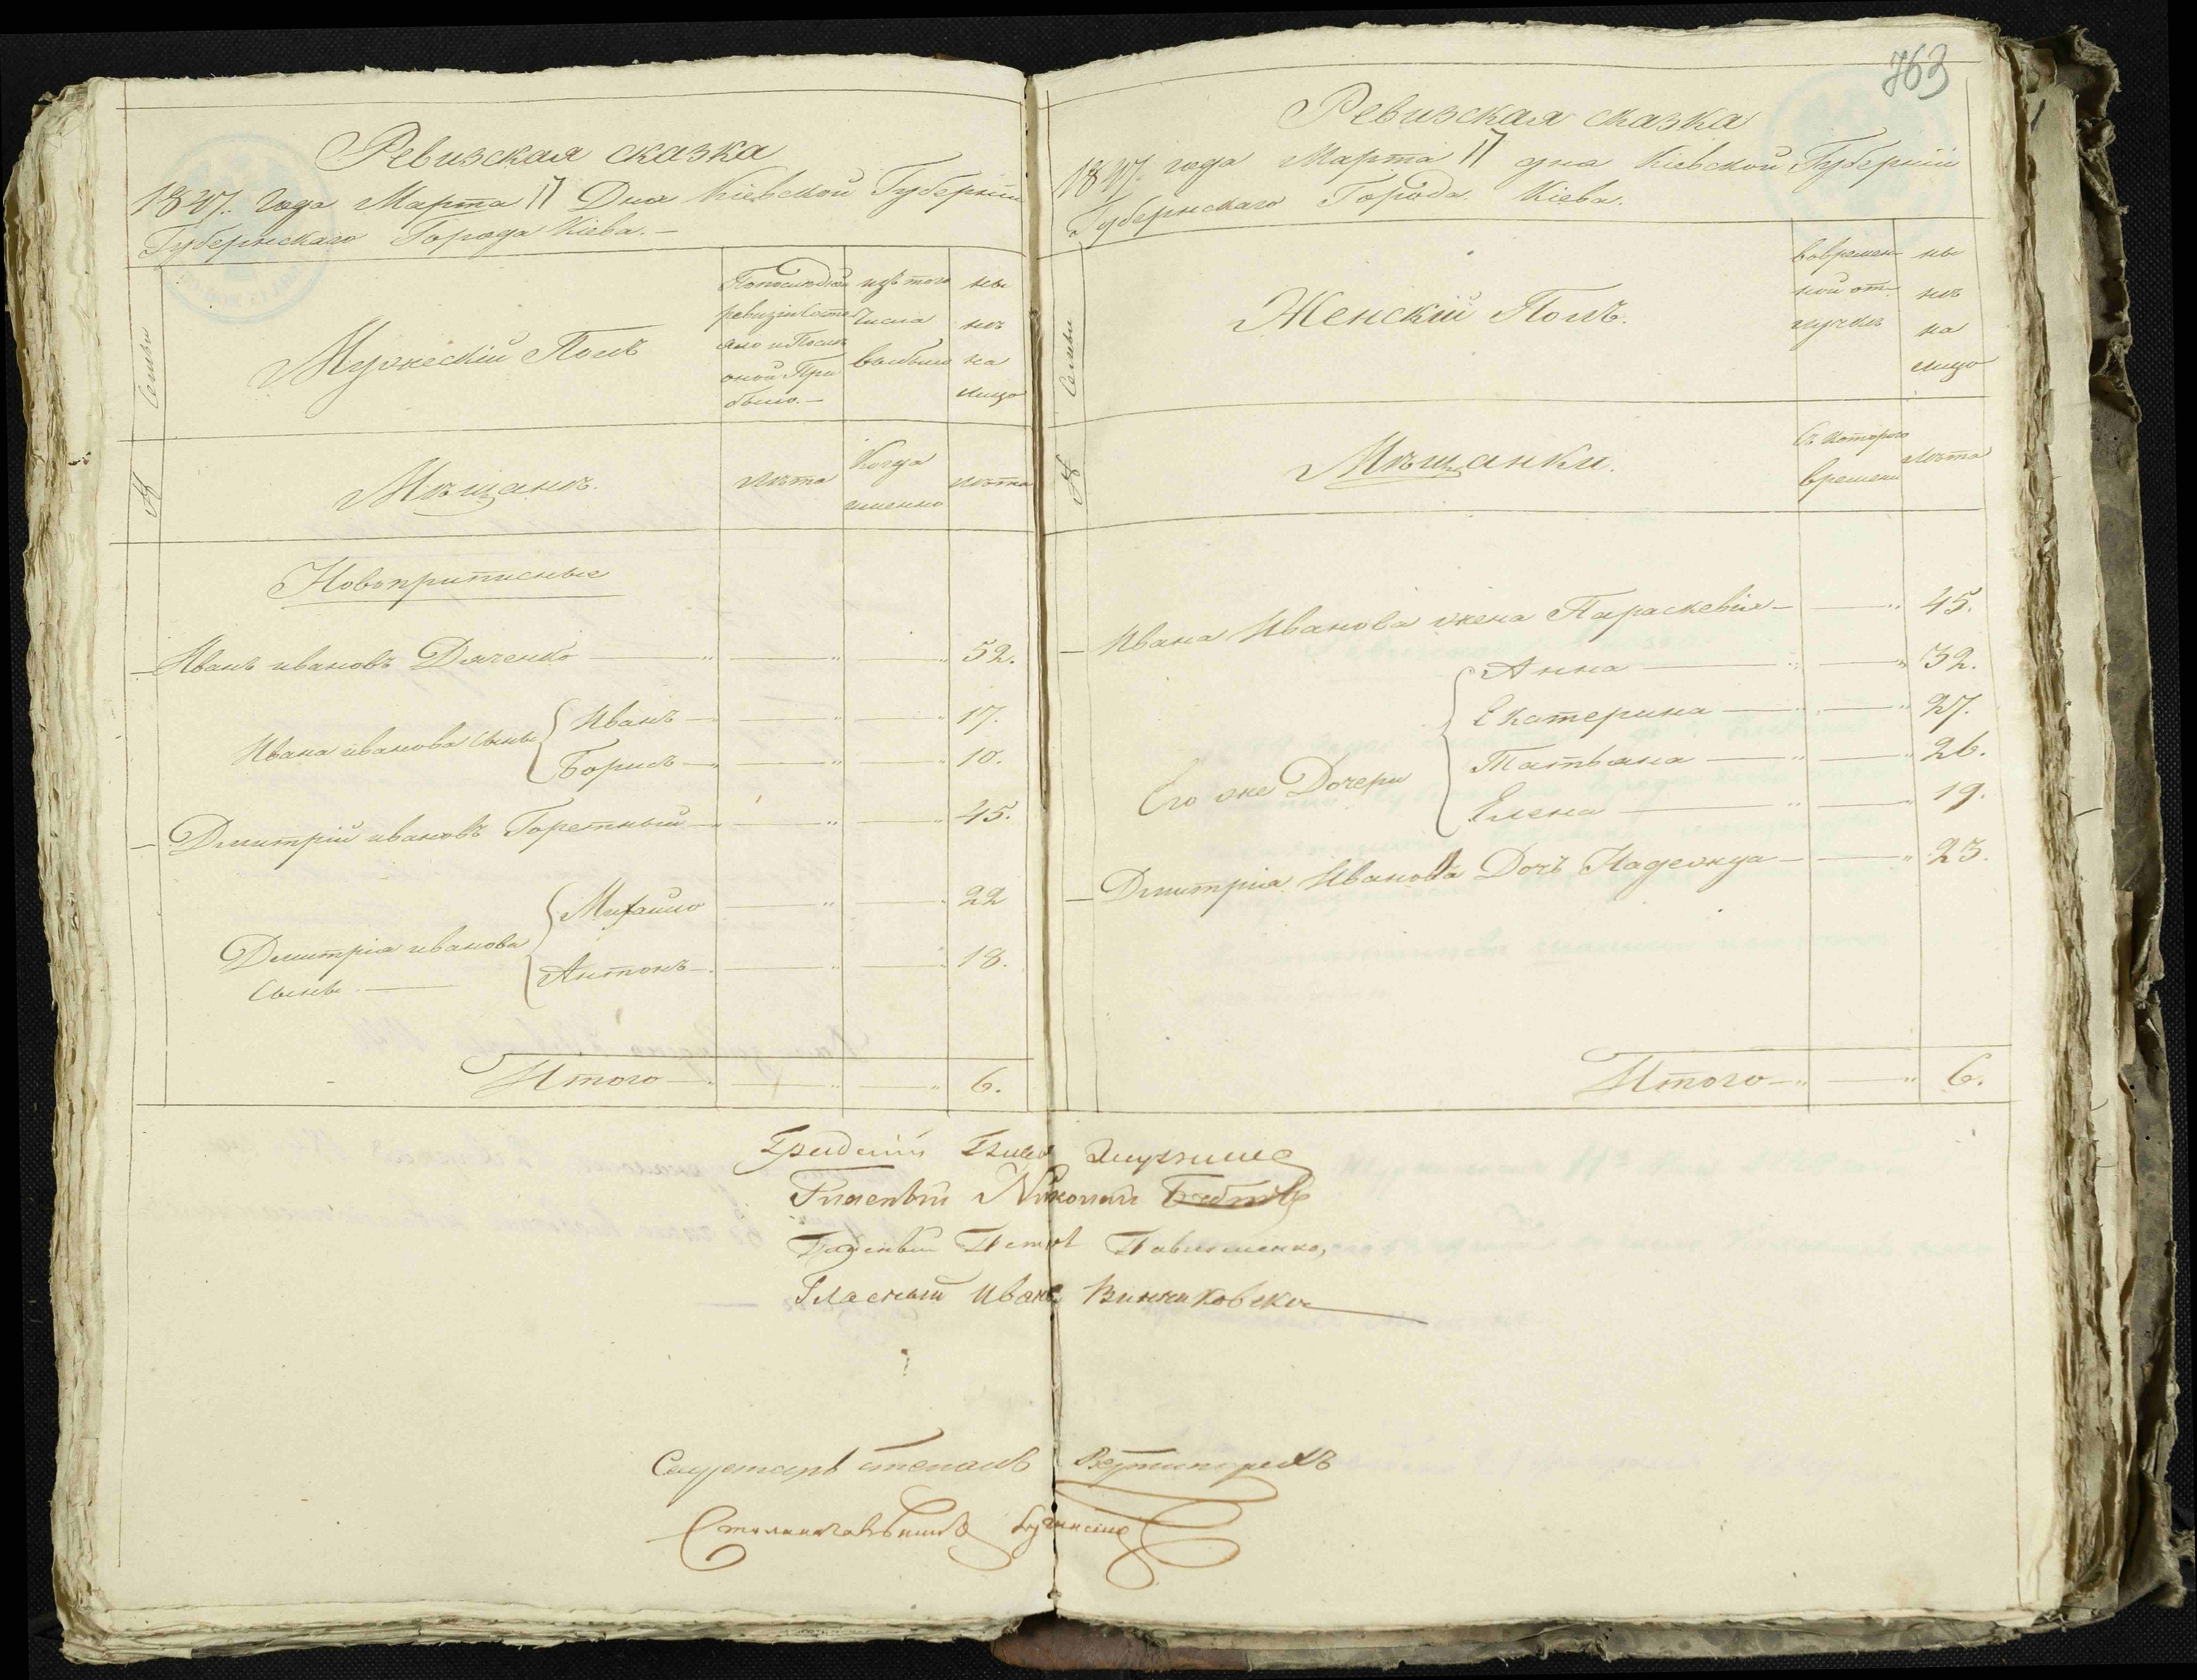 763
Ревизская сказка
1837. Года Марта 17 Дня Кіевской Губерніи
Губернскаго Города Кіева. —
Семьи
№
Мужескій Полъ
По последней
ревизіи состо
яло и После
оной При
было. —
изъ того
числа
выбыло
ны
нѣ
на
лицо
Мѣщанъ.
Лѣта
Когда
именно
Лѣта
Новоприписные
Иванъ ивановъ Дяченко — 52.
Ивана иванова Сыны
Иванъ — 17.
Борисъ — 10.
Дмитрій ивановъ Горетный — 45.
Дмитрія иванова
Сыны —
Михайло — 22
Антонъ — 18.
Итого — 6.
Ревизская сказка
1837. года Марта 17 дня Кіевской Губерніи
Губернскаго Города Кіева.
Семьи
№
Женскій Полъ.
во времен
ной от
лучкѣ
ны
нѣ
на
лицо
Мѣщанки.
Съ котораго
времени
Лѣта
Ивана Иванова жена Параскевія — 45.
Его же Дочери
Анна — 32.
Екатерина — 27.
Татьяна — 26.
Елена — 19.
Дмитрія Иванова Дочь Надежда — 23.
Итого — 6.
Гласный Николай
Гласный Петръ Павлшенко,
Гласный Иванъ Винниковскій
Секретарь Степанъ
Столоначальникъ